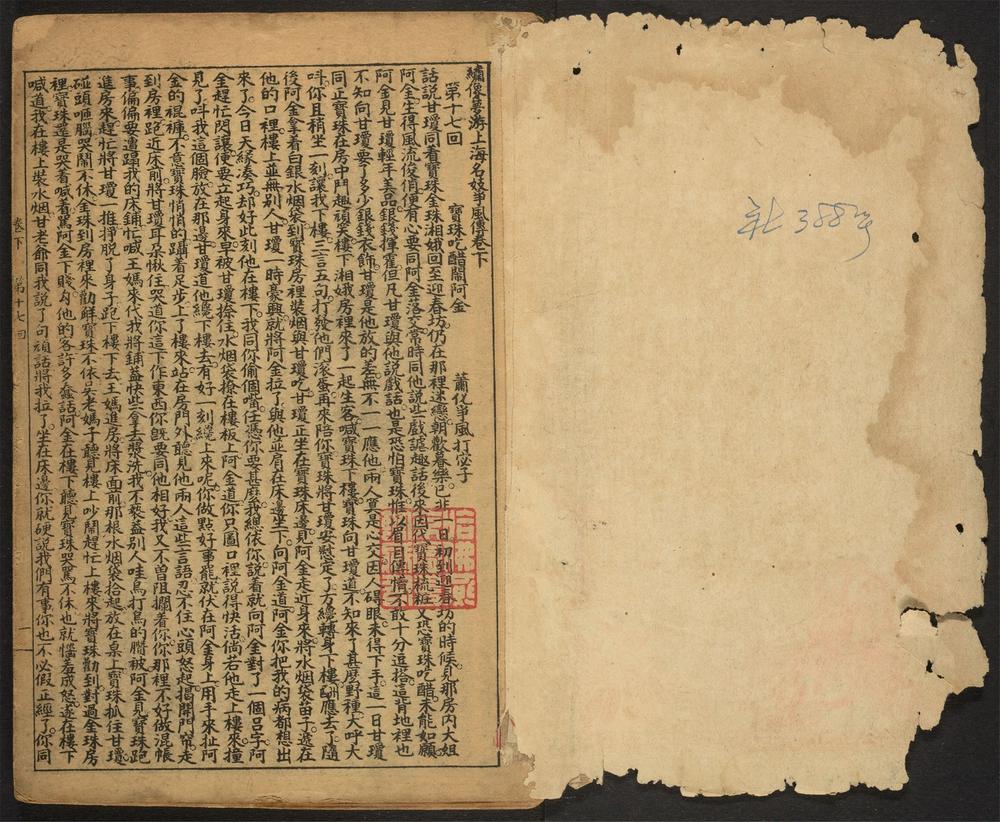 社 388号
繡像夢游上海名妓爭風傳卷下
第十七回 寶珠吃醋鬧阿金 蕭化爭風打宓子
話說甘瓊同着寶珠金珠湘娥回至迎春坊仍在那裡迷戀朝歡暮樂已非一日初到迎春坊的時候見那房內大姐
阿金生得風流俊俏便有心要同阿金落交常時同他說些戲謔趣話後來因代寶珠梳粧又恐寶珠吃醋未能如願
阿金見甘瓊輕年美品銀錢揮霍但凡甘瓊與他說戲話也是恐怕寶珠惟以眉目傳情不敢十分逗搭這背地裡也
不知向甘瓊要了多少銀錢衣飾甘瓊是他放的差無不一一應他兩人算是心交因人碍眼未得下手這一日甘瓊
同正寶珠在房中鬥趣頑笑樓下湘娥房裡來了一起生客喊寶珠下樓寶珠向甘瓊道不知來了甚麼野種大呼大
呌你且稍坐一刻讓我下樓三言五句打發他們滾蛋再來陪你寶珠將甘瓊安慰定了方纔轉身下樓酬應去了隨
後阿金拿着白銀水烟袋到寶珠房裡裝烟與甘瓊吃甘瓊正坐在寶珠床邊見阿金走近身來將水烟袋笛子遞在
他的口裡樓上並無別人甘瓊一時豪興就將阿金拉了與他並肩在床邊坐下向阿金道阿金你把我的病都想出
來了今日天緣湊巧却好此刻他在樓下我同你偷個嘴任憑你要甚麼我總依你說着就向阿金對了一個呂字阿
金趕忙閃讓便要立起身來早被甘瓊捺住水烟袋撩在樓板上阿金道你只圖口裡說得快活倘若他走上樓來撞
見了呌我這個臉放在那邊甘瓊道他纔下樓去有好一刻纔上來呢你做點好事罷就伏在阿金身上用手來扯阿
金的裩褲不意寶珠悄悄的躡着足步上了樓來站在房門外聽見他兩人這些言語忍不住心頭怒起揭開門帘走
到房裡跑近床前將甘瓊耳朵揪住哭道你這下作東西你旣要同他相好我又不曾阻擱着你你那裡不好做混帳
事偏偏要遭蹋我的床鋪忙喊王媽來代我將鋪蓋快些拿去漿洗我不葢別人哇罵打罵的臜被阿金見寶珠跑
進房來趕忙將甘瓊一推掙脫了身子跑下樓下去王媽進房將床面前那根水烟袋拾起放在桌上寶珠抓住甘瓊
碰頭咂腦哭鬧不休金珠到房裡來勸解寶珠不依吳老媽子聽見樓上吵鬧趕忙上樓來將寶珠勸到對過金珠房
裡寶珠還是哭着喊着罵阿金下賤肉他的客許多蠢話阿金在樓下聽見寶珠哭罵不休也就惱羞成怒遂在樓下
喊道我在樓上裝水烟甘老爺同我說了句頑話將我拉了坐在床邊你就硬說我們有事你也不必假正經了你同
卷下 第十七回 一